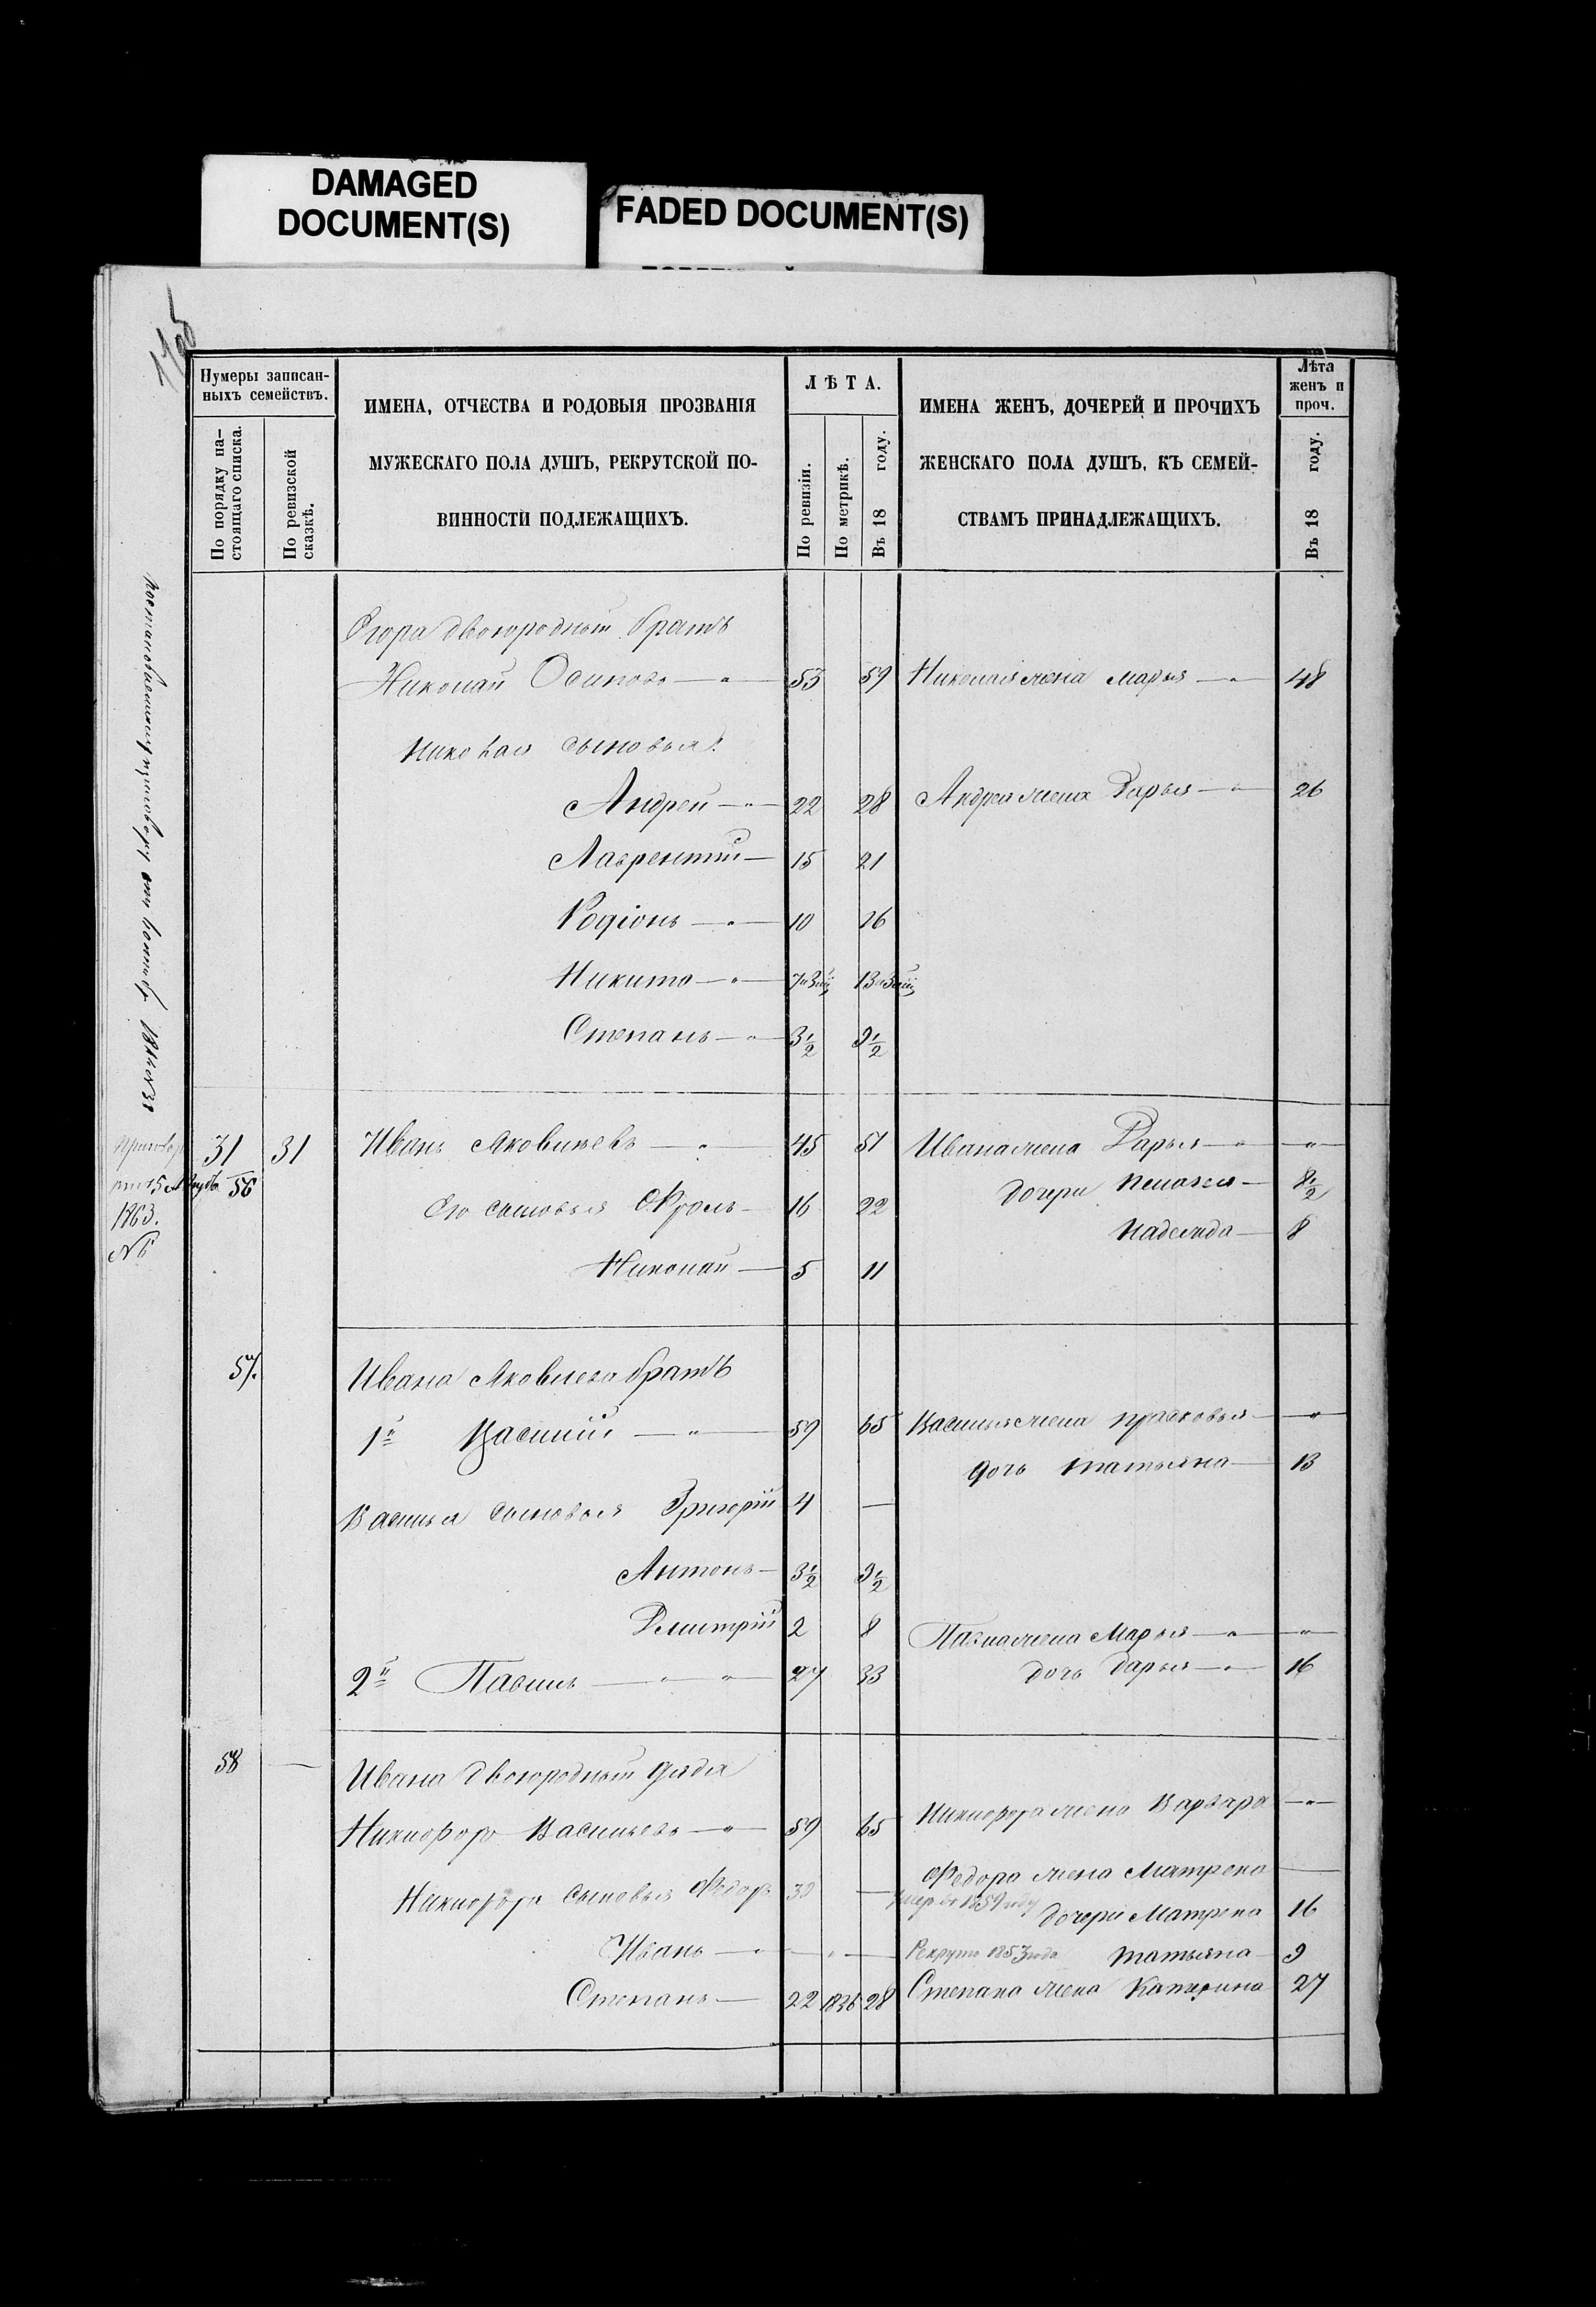 DAMAGED
DOCUMENT(S)
FADED DOCUMENT(S)
Нумеры записан-
ныхъ семействъ.
По порядку на-
стоящаго списка.
По ревизской
сказкѣ.
ИМЕНА, ОТЧЕСТВА И РОДОВЫЯ ПРОЗВАНІЯ
МУЖЕСКАГО ПОЛА ДУШЪ, РЕКРУТСКОЙ ПО-
ВИННОСТИ ПОДЛЕЖАЩИХЪ.
ЛѢТА.
По ревизіи.
По метрикѣ.
Въ 18 году.
ИМЕНА ЖЕНЪ, ДОЧЕРЕЙ И ПРОЧИХЪ
ЖЕНСКАГО ПОЛА ДУШЪ, КЪ СЕМЕЙ-
СТВАМЪ ПРИНАДЛЕЖАЩИХЪ.
Лѣта
женъ и
проч.
Въ 18 году.
Егора двоюродный братъ
Николай Осиповъ — " — 53 59 Николая жена Марья — " — 48
Николая сыновья:
Андрей — " — 22 28 Андрея жена Дарья — " — 26
Лаврентий — 15 21
Родіонъ — " — 10 16
Никита — " — 7 13
Степанъ — " — 3 1/2 9 1/2
31 31 Иванъ Яковлевъ — " — 45 51 Ивана жена Дарья — " — — " —
56
1863.
№ 6
Его сыновья Фролъ — 16 22 дочери Пелагея — 8 1/2
Надежда — 8
Николай — 5 11
57. Ивана Яковлева братъ
1й Василий — " — 59 65 Василья жена Прасковья — — " —
дочь Татьяна — 13
Василья сыновья Григорій 4 —
Антонъ — 3 1/2 9 1/2
Дмитрій 2 8
Павла жена Марья — " — — " —
2й Павелъ — " — " — 27 33 дочь Дарья — " — 16
58 — Ивана двоюродный дядя
Никифоръ Васильевъ — " — 59 65 Никифора жена Варвара — " —
Никифора сыновья Федоръ 30 — Федора жена Матрена —
умеръ въ 1859 году
дочери Матрена 16
Иванъ — " — " — Рекрутъ 1853 года Татьяна — 9
Степанъ — 22 1836 28 Степана жена Катерина 27